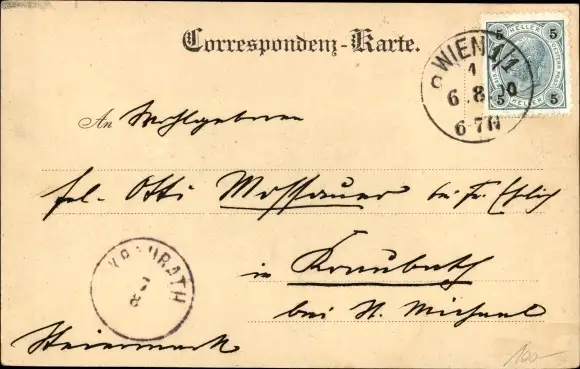 Correspondenz-Karte.
5 HELLER 5
WIEN 1/1
1
6.8.00
6-7N
5 HELLER 5
An Wohlgeboren
Otti Mossauer bei Fr.
in
KRAUBATH
7
8
bei St. Michael
Steiermark
100-